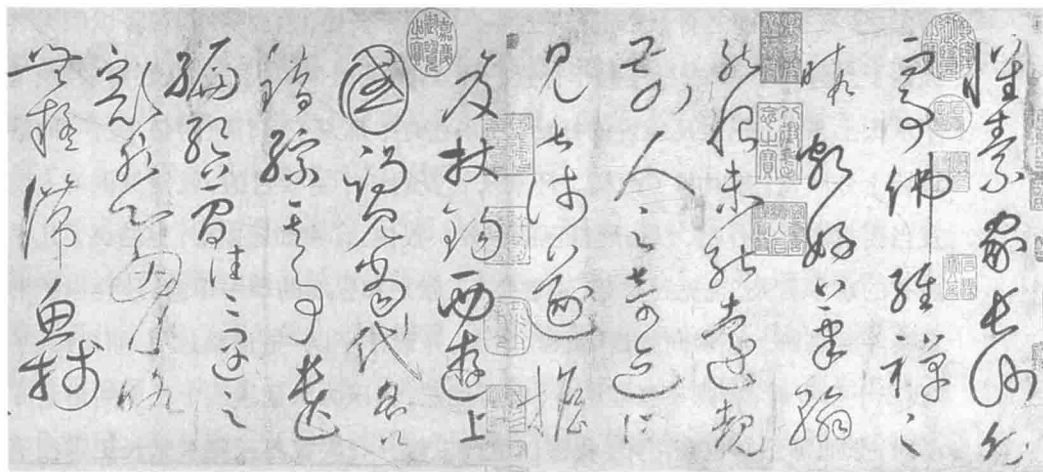 懷素家長沙幼
而事佛經禪之
暇頗好筆翰
然恨未能遠覩
前人之奇迹所
見甚淺遂擔
笈杖錫西遊上
國謁見當代名公
錯綜其事遺
編絶簡往往遇之
豁然心胸略
無疑滯魚牋
八徵耄念之寶
嘉慶御覽之寶